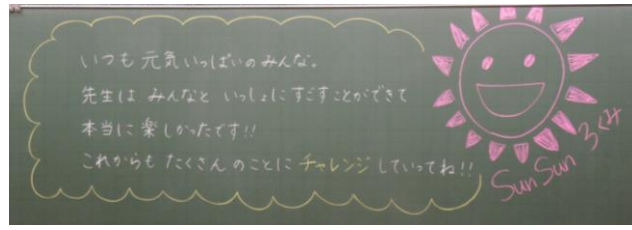 いつも元気いっぱいのみんな。
先生は みんなと いっしょにすごすことができて
本当に楽しかったです!!
これからも たくさん のことに チャレンジ していってね!!
Sun Sun 3くみ